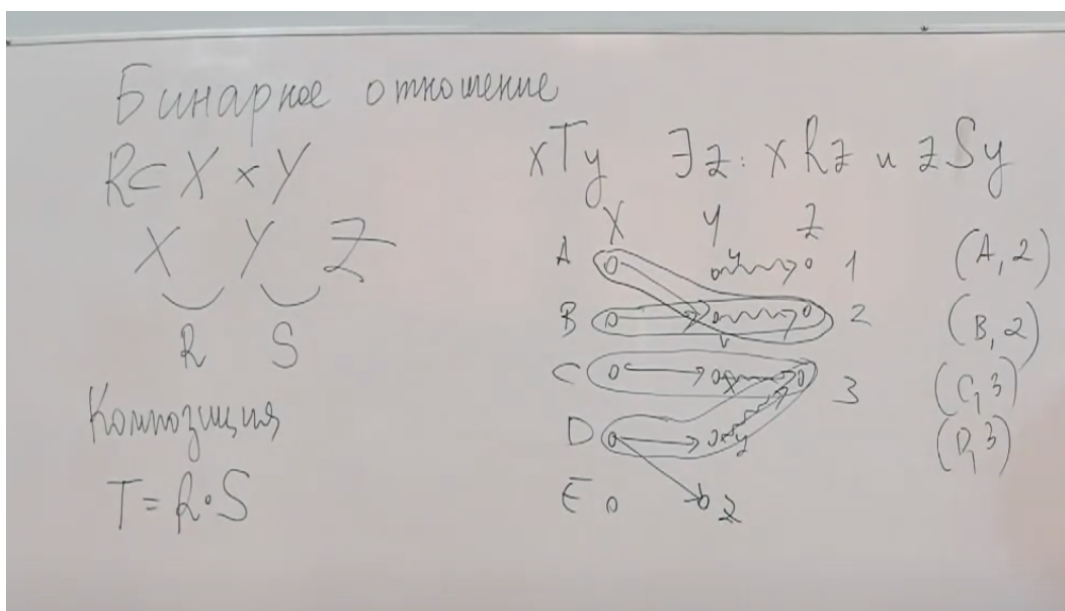 Бинарное отношение
R⊂ X × Y
X Y Z
R S
Композиция
T = R∘S
xTy ∃z: xRz и zSy
X Y Z
A y 1 (A, 2)
B v 2 (B, 2)
C x 3 (C, 3)
D y (D, 3)
E z